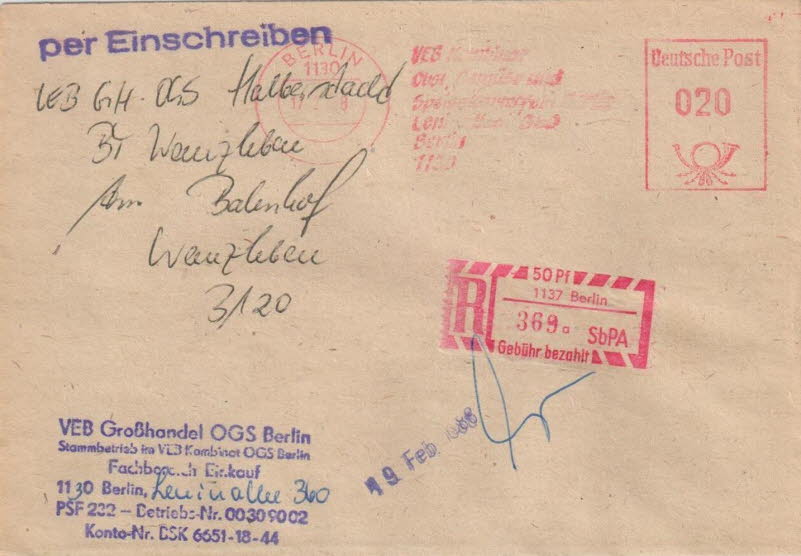 per Einschreiben
BERLIN
1130
VEB Kombinat
Obst, Gemüse und
Speisekartoffeln Berlin
360
Berlin
1130
Deutsche Post
020
VEB GH. OGS Halberstadt
BT Wanzleben
Am Bahnhof
Wanzleben
3120
50 Pf
1137 Berlin
R
369a SbPA
Gebühr bezahlt
19. Feb. 1988
VEB Großhandel OGS Berlin
Stammbetrieb im VEB Kombinat OGS Berlin
Fachbereich Einkauf
1130 Berlin, Leninallee 360
PSF 232 – Betriebs-Nr. 00309002
Konto-Nr. BSK 6651-18-44